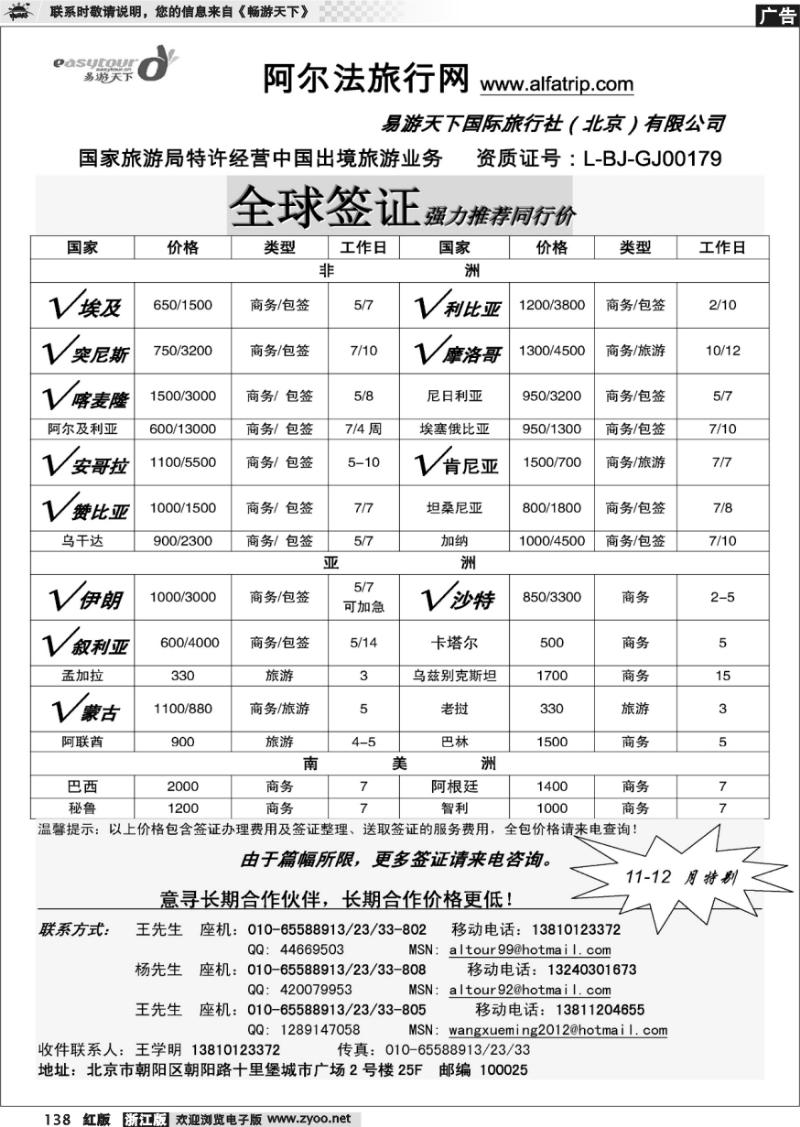 联系时敬请说明，您的信息来自《畅游天下》
广告
easytour
易游天下
阿尔法旅行网 www.alfatrip.com
易游天下国际旅行社（北京）有限公司
国家旅游局特许经营中国出境旅游业务 资质证号：L-BJ-GJ00179
全球签证 强力推荐同行价
国家 价格 类型 工作日 国家 价格 类型 工作日
非 洲
√埃及 650/1500 商务/包签 5/7 √利比亚 1200/3800 商务/包签 2/10
√突尼斯 750/3200 商务/包签 7/10 √摩洛哥 1300/4500 商务/旅游 10/12
√喀麦隆 1500/3000 商务/ 包签 5/8 尼日利亚 950/3200 商务/包签 5/7
阿尔及利亚 600/13000 商务/ 包签 7/4 周 埃塞俄比亚 950/1300 商务/包签 7/10
√安哥拉 1100/5500 商务/ 包签 5-10 √肯尼亚 1500/700 商务/旅游 7/7
√赞比亚 1000/1500 商务/ 包签 7/7 坦桑尼亚 800/1800 商务/包签 7/8
乌干达 900/2300 商务/ 包签 5/7 加纳 1000/4500 商务/包签 7/10
亚 洲
√伊朗 1000/3000 商务/包签 5/7 可加急 √沙特 850/3300 商务 2-5
√叙利亚 600/4000 商务/包签 5/14 卡塔尔 500 商务 5
孟加拉 330 旅游 3 乌兹别克斯坦 1700 商务 15
√蒙古 1100/880 商务/旅游 5 老挝 330 旅游 3
阿联酋 900 旅游 4-5 巴林 1500 商务 5
南 美 洲
巴西 2000 商务 7 阿根廷 1400 商务 7
秘鲁 1200 商务 7 智利 1000 商务 7
温馨提示：以上价格包含签证办理费用及签证整理、送取签证的服务费用，全包价格请来电查询！
由于篇幅所限，更多签证请来电咨询。
11-12 月特别
意寻长期合作伙伴，长期合作价格更低！
联系方式： 王先生 座机：010-65588913/23/33-802 移动电话：13810123372
QQ: 44669503 MSN: altour99@hotmail.com
杨先生 座机：010-65588913/23/33-808 移动电话：13240301673
QQ: 420079953 MSN: altour92@hotmail.com
王先生 座机：010-65588913/23/33-805 移动电话：13811204655
QQ: 1289147058 MSN: wangxueming2012@hotmail.com
收件联系人：王学明 13810123372 传真：010-65588913/23/33
地址：北京市朝阳区朝阳路十里堡城市广场 2 号楼 25F 邮编 100025
138 红版 浙江版 欢迎浏览电子版 www.zyoo.net